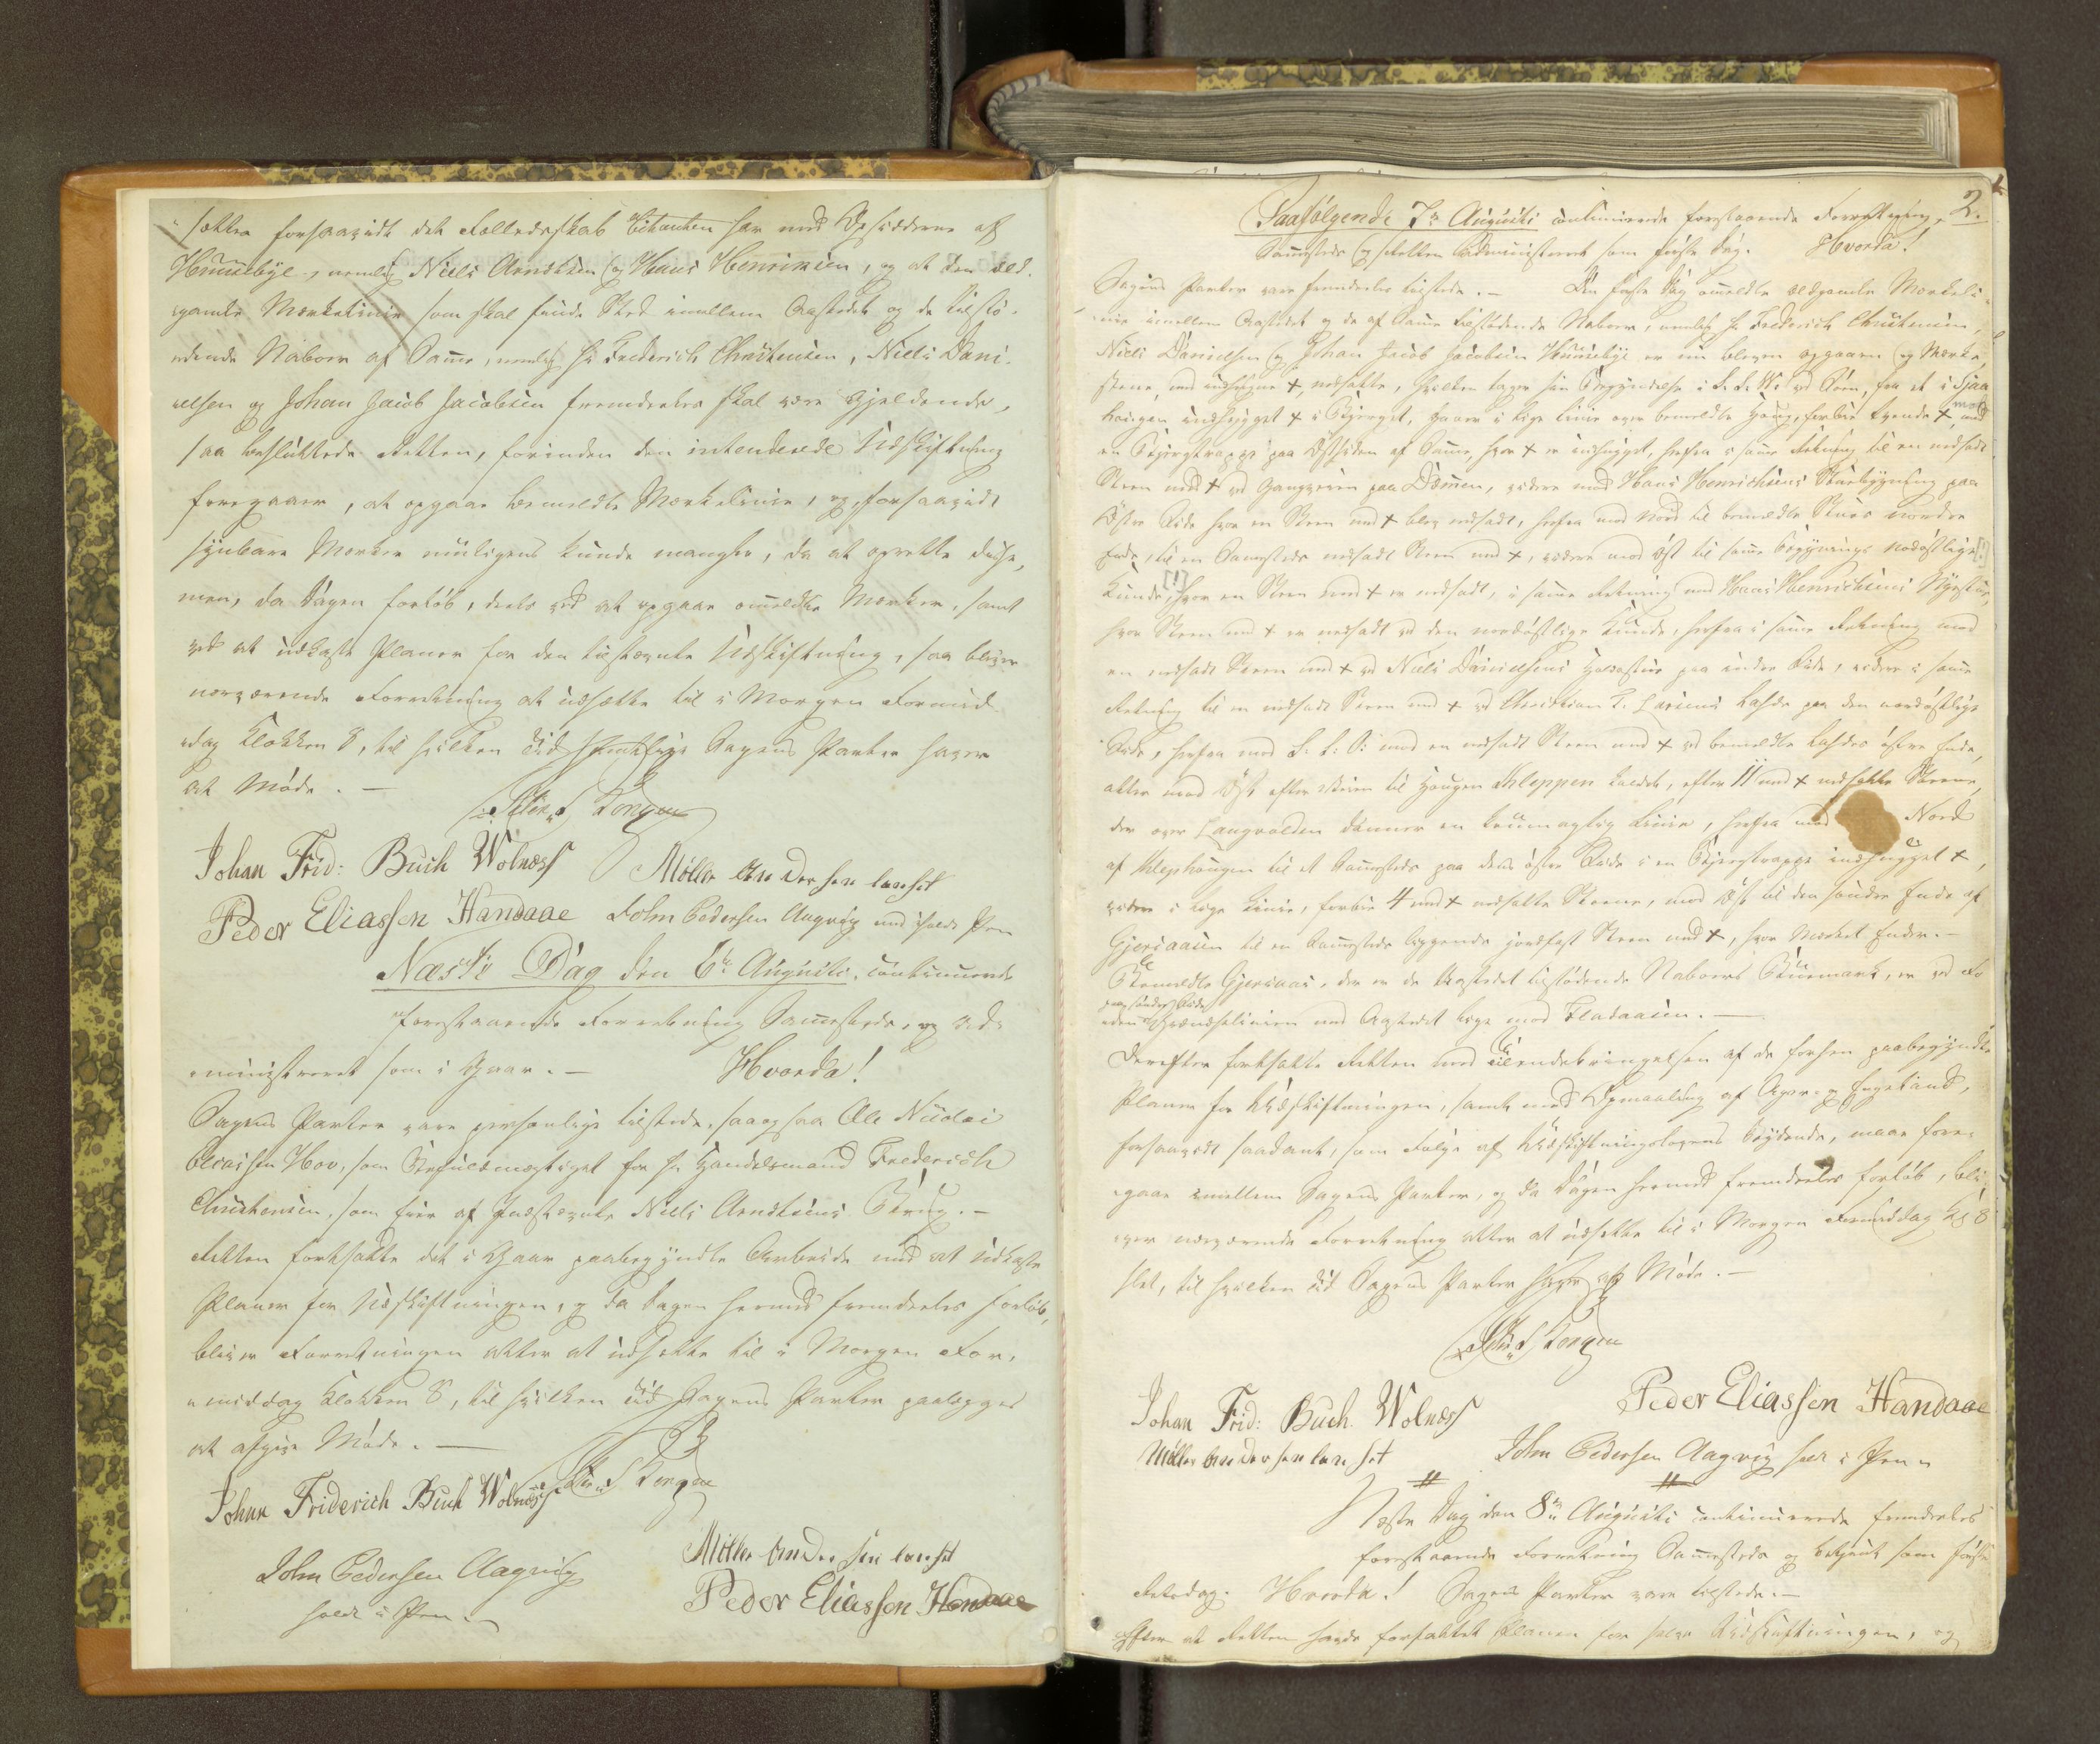 sættes forsaavidt det Fælledsskab Citanten har med Opsidderne af
Hunnebye, nemlig Niels Arndtsen og Hans Henrichsen, og at den æld-
gamle Merkelinie som skal finde Sted imellem Aastedet og de tilstö-
dende Naboer af Samme, nemlig Hr Frederich Christensen, Niels Dani-
elsen og Johan Jacob Jacobsen fremdeeles skal være gjeldende,
saa besluttede Retten, forinden den intenderede Udskiftning
foregaaer, at opgaae bemeldte Merkelinie, og forsaavidt
synbare Merker muligens kunde mangle, da at oprette disse,
men, da Dagen forlöb, deels ved at opgaae ommeldte Merker, samt
ved at udkaste Planen for den tilstævnte Udskiftning, saa bliver
nærværende Forretning at udsætte til i Morgen Formid-
dag Klokken 8, til hvilken Tid samtlige Sagens Parter haver
at Möde. —
Johan Frid: Buch Wolnæss Möller Andersen
Peder Eliassen Handaae John Pedersen Aagvig med holdt Pen
Næste Dag den 6te Augusti, continuerede
forestaaende Forretning Sammesteds, og ad-
ministreret som i Gaar. — Hvorda!
Sagens Parter vare personlige tilstede, saaogsaa Ole Nicolai
Eliassen Hov, som Befuldmægtiget for Hr Handelsmand Frederich
Christensen, som Eier af Indstævnte Niels Arndtsens Brug. —
Retten fortsatte det i Gaar paabegyndte Arbeide med at udkaste
Planen for Udskiftningen, og da Dagen hermed fremdeeles forlöb,
bliver Forretningen atter at udsætte til i Morgen For-
middag Klokken 8, til hvilken Tid Sagens Parter paalægges
at afgive Möde. —
Johan Friderich Buch Wolnæss
Möller Andersen
John Pedersen Aagvig
Peder Eliassen Handaae
holdt i Pen. —
2.
Paafölgende 7de Augusti continuerede forestaaende Forretning
Sammesteds og Retten administreret som förste Dag. Hvorda!
Sagens Parter vare fremdeeles tilstede. — Den förste Dag ommeldte ældgamle Merkeli-
nie imellem Aastedet og de af Samme tilstödende Naboer, nemlig Hr Frederich Christensen,
Niels Danielsen og Johan Jacob Jacobsen Hunnebye er nu bleven opgaaen og Merke-
stene, med indhugne +, nedsatte, hvilken tager sin Begyndelse i S. S. W. ved Söen, fra et i Sjaa-
haugen indhugget + i Bjerget, gaaer i lige Linie over bemeldte Houg, forbi tvende +, mod
en Bjergknappe paa Östsiden af Samme, hvor + er indhugget, herfra i samme Retning til en nedsat
Steen med + ved Gangveien paa Dammen, videre mod Hans Henrichsens Stuebygning paa
Östre Side hvor en Steen med + blev nedsadt, herfra mod Nord til bemeldte Stues nordre
Ende, til en Sammesteds nedsadt Steen med +, videre mod Öst til samme Bygnings nordöstlige
Kunde, hvor en Steen med + er nedsadt, i samme Retning mod Hans Henrichsens
hvor Steen med + er nedsadt ved den nordöstlige Kunde, herfra i samme Retning mod
en nedsadt Steen med + ved Niels Danielsens paa indre Side, videre i samme
Retning til en nedsadt Steen med + ved Christian P. Larsens Ladse paa den nordöstlige
Side, herfra mod S: S: O: mod en nedsadt Steen med + ved bemeldte Lades östre Ende,
atter mod Öst efter til Haugen Kleppen kaldet, efter 11 med + nedsatte Steene,
der over Langvolden danner en krumagtig Linie, herfra mod Nord
af Klephaugen til et Sammesteds paa dens östre Side i en Bjergknappe indhugget +,
videre i lige Linie, forbi 4 med + nedsatte Steene, mod Öst til den söndre Ende af
Gjeraasen til en Sammesteds liggende jordfast Steen med +, hvor Merket Ender. —
Bemeldte Gjeraas, der er de Aastedet tilstödende Naboers Buemark, er ved
paa söndre Side
Grændselinien med Aastedet lige mod Fladaasen. —
Derefter fortsatte Retten med tilendebringelsen af de forhen paabegyndte
Planer for Udskiftningen, samt med Opmaaling af Ager- og Engeland,
forsaavidt saadant, som Fölge af Udskiftningslovens Bydende, maae fore-
gaae imellem Sagens Parter, og da Dagen hermed fremdeeles forlöb, bli-
ver nærværende Forretning atter at udsætte til i Morgen Formiddag Kl 8
slet, til hvilken Tid Sagens Parter haver at Möde. —
Johan Frid: Buch Wolnæss Peder Eliassen Handaae
Möller Andersen John Pedersen Aagvig holdt i Pen
Næste Dag den 8de Augusti continuerede fremdeeles
forestaaende Forretning Sammesteds og betjent som förste
Retsdag. Hvorda! Sagens Parter vare tilstede. —
Efter at Retten havde forfattet Planen for selve Udskiftningen, og